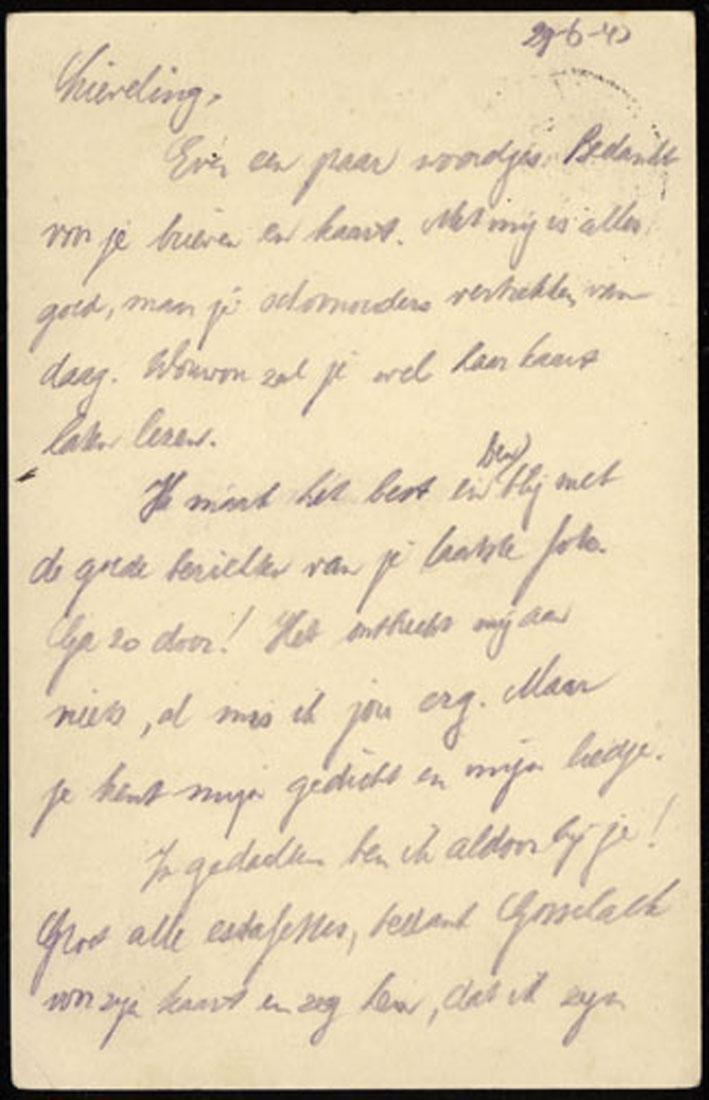 29-6-43
Lieveling,
Even een paar woordjes. Bedankt
voor je brieven en kaart. Met mij is alles
goed, maar je schoonouders vertrekken van-
daag. zal je wel haar kaart
laten lezen.
Ik maak het best en
ben
blij met
de goede van je laatste foto.
Ga zo door! Het ontbreekt mij aan
niets, al mis ik jou erg. Maar
je kent mijn gedicht en mijn liedje.
In gedachten ben ik aldoor bij je!
Groet alle estafettes, bedank
voor zijn kaart en zeg hem, dat ik zijn